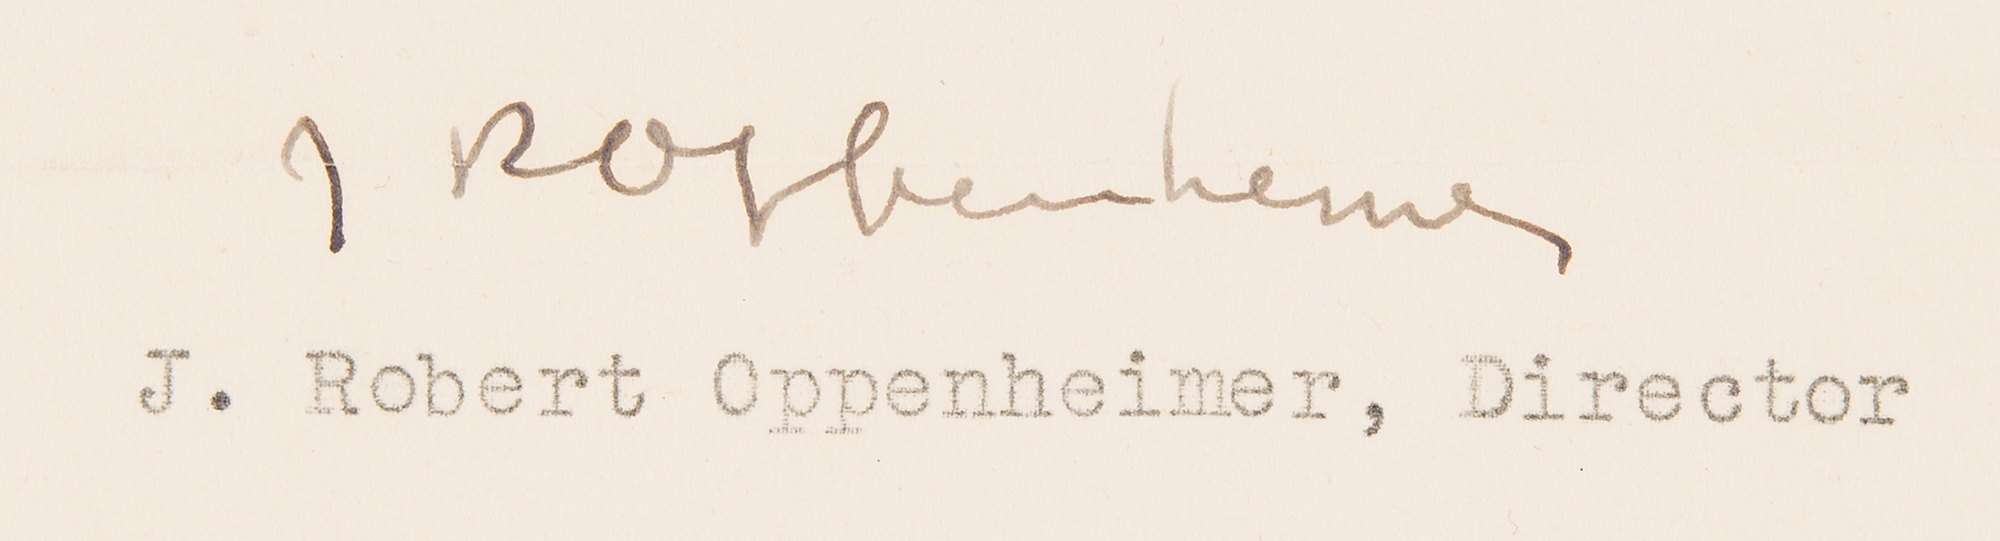 J R Oppenheimer
J. Robert Oppenheimer, Director